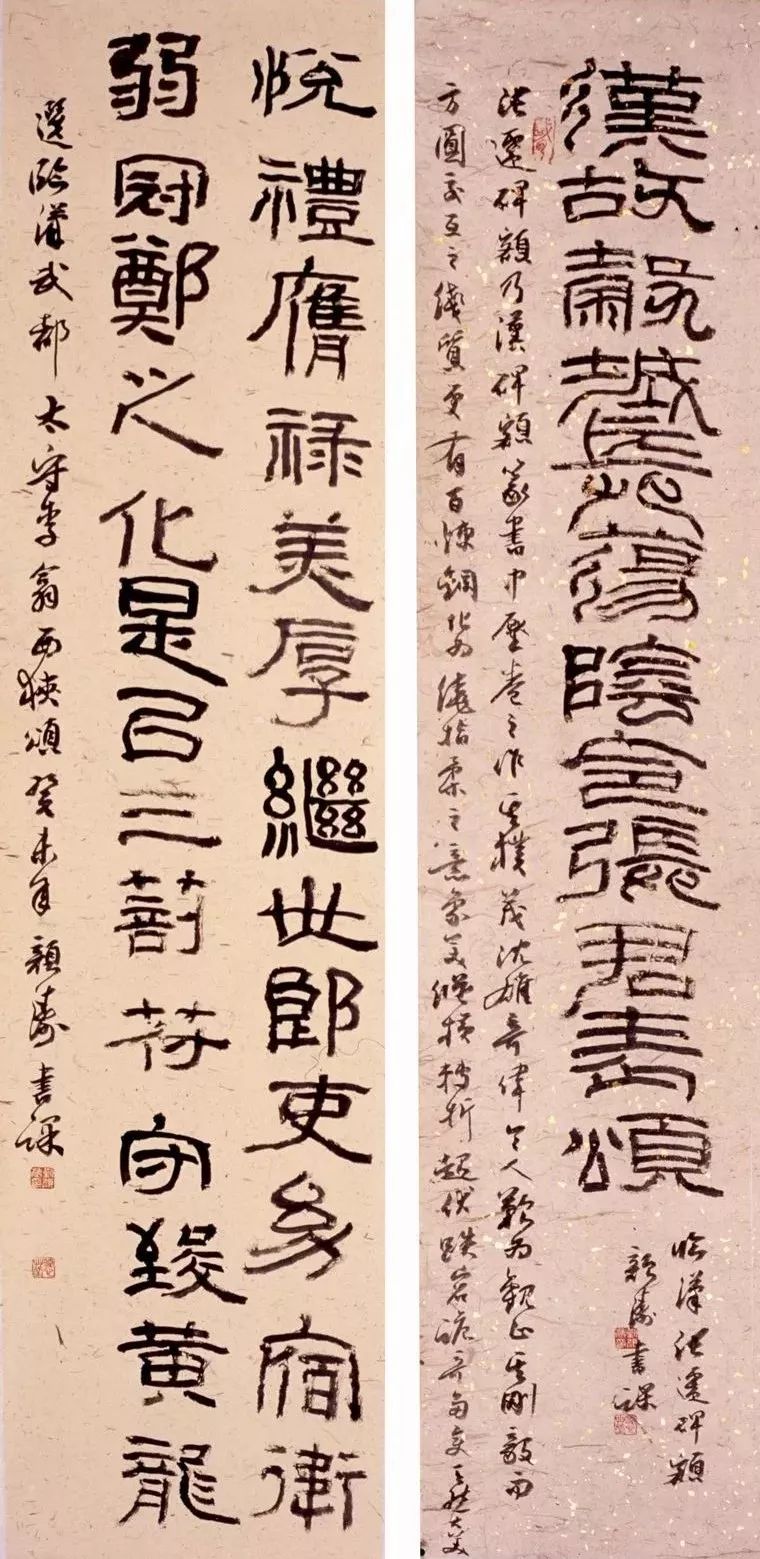 漢故穀城長蕩陰令張君表頌
臨漢張遷碑額
濤書課
張遷碑額乃漢碑額篆書中壓卷之作其樸茂沈雄奇偉令人歎為觀止其剛毅而
方圓交互之綫質更有百煉鋼化為繞指柔之意象縱橫轉折起伏跌宕詭奇多變天然大美
悅禮膺祿美厚繼世郎吏幼宿衛
弱冠鄭之化是㠯三剖符守致黃龍
選臨漢武都太守李翕西狹頌癸未年濤書課